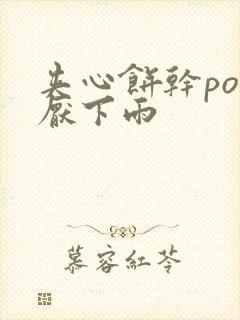 夹心餅幹po
厭下雨
慕容紅苓